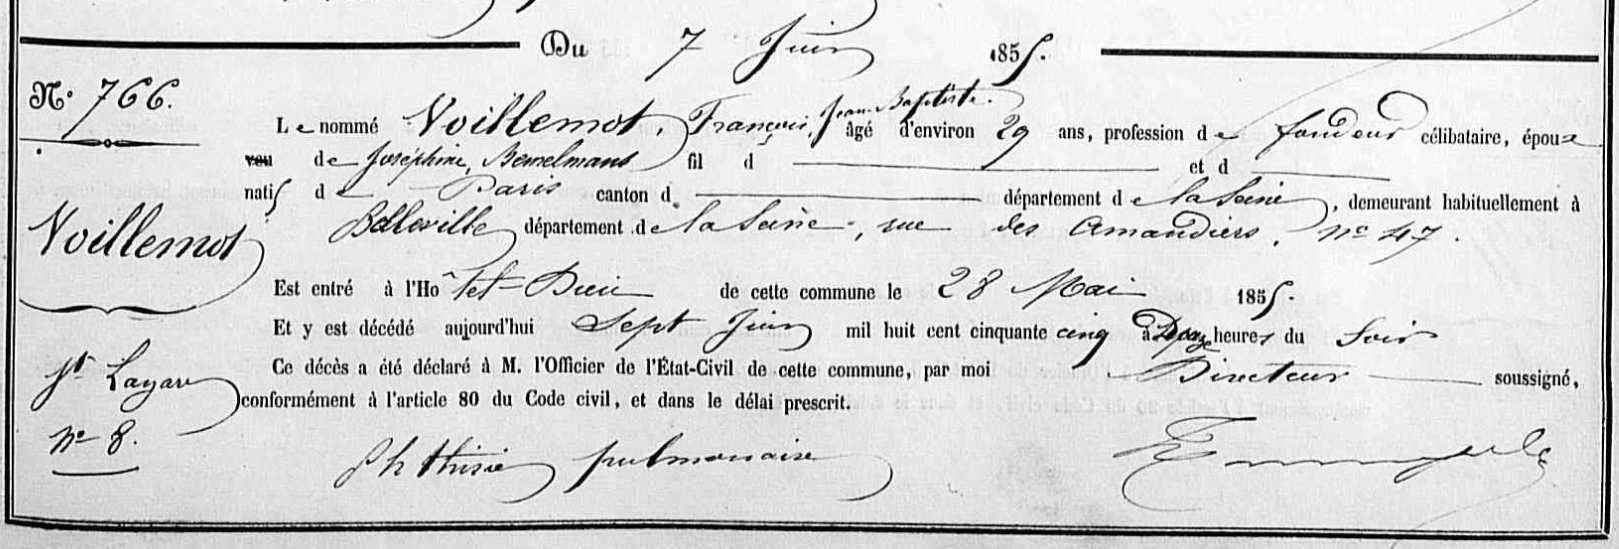 Du 7 Juin 1855.
N.° 766.
Le nommé Voillemot, François, Jean Baptiste. âgé d'environ 29 ans, profession de fondeur célibataire, époux
veu de Joséphine, Bemelmans fil d et d
natif de Paris canton d département de la Seine, demeurant habituellement à
Voillemot
Belleville département de la Seine, rue des Amandiers, n° 47.
Est entré à l'Hôtel-Dieu de cette commune le 28 Mai 1855.
Et y est décédé aujourd'hui Sept Juin mil huit cent cinquante cinq à onze heures du Soir
Ce décès a été déclaré à M. l'Officier de l'État-Civil de cette commune, par moi Directeur soussigné,
St Lazare
conformément à l'article 80 du Code civil, et dans le délai prescrit.
n° 8.
Phthisie pulmonaire